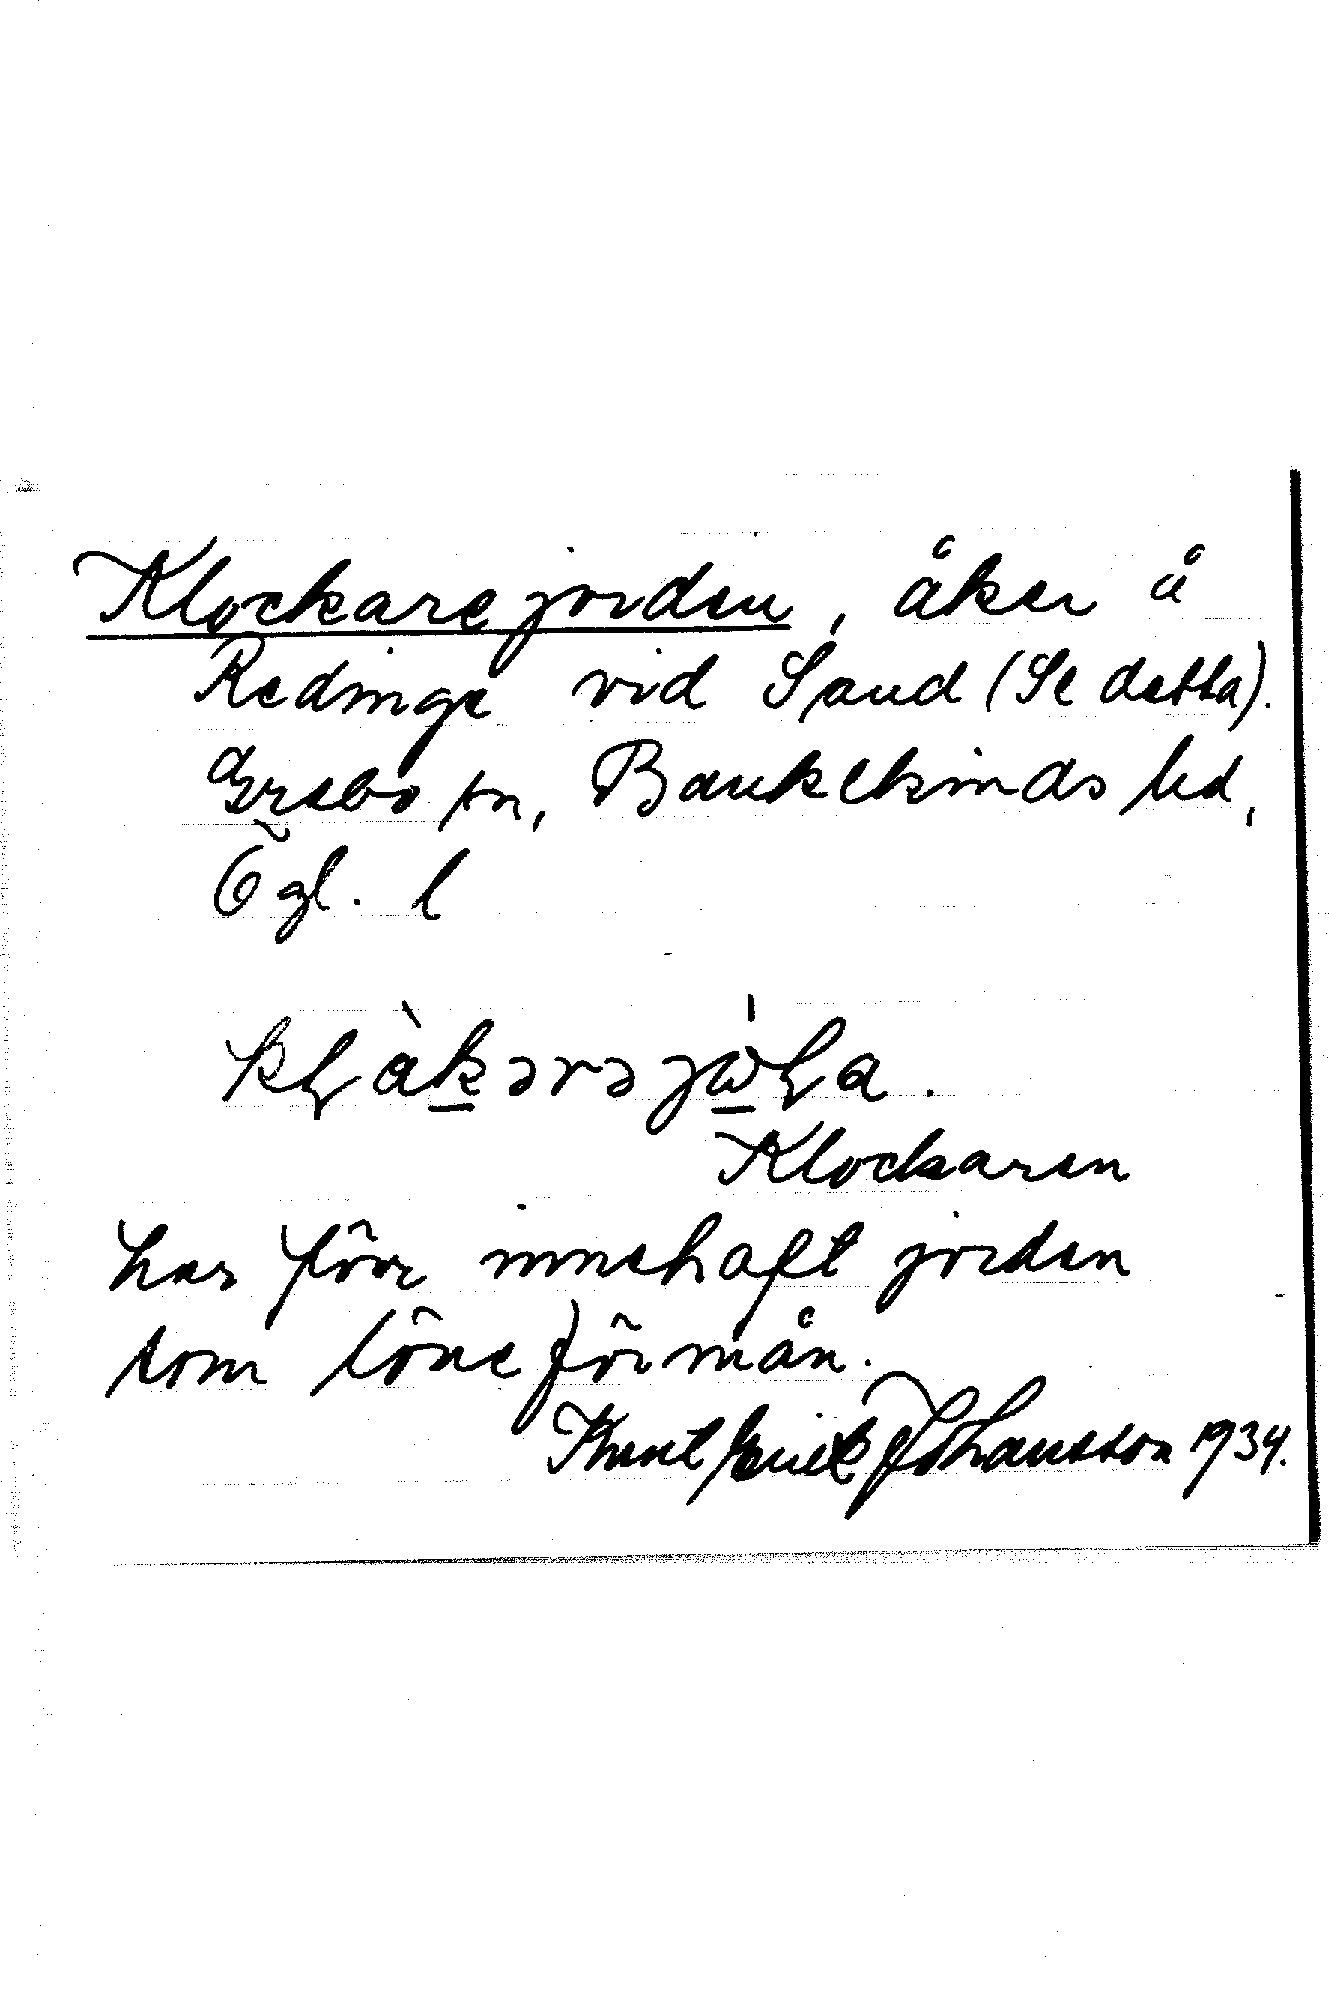 Klockarejorden, åker å
Redinge vid Sand (Se detta).
Grebo sn, Bankekinds hd,
Ögl. l
Klockaren
har förr innehaft jorden
som löneförmån.
Knut Erik Johansson 1934.